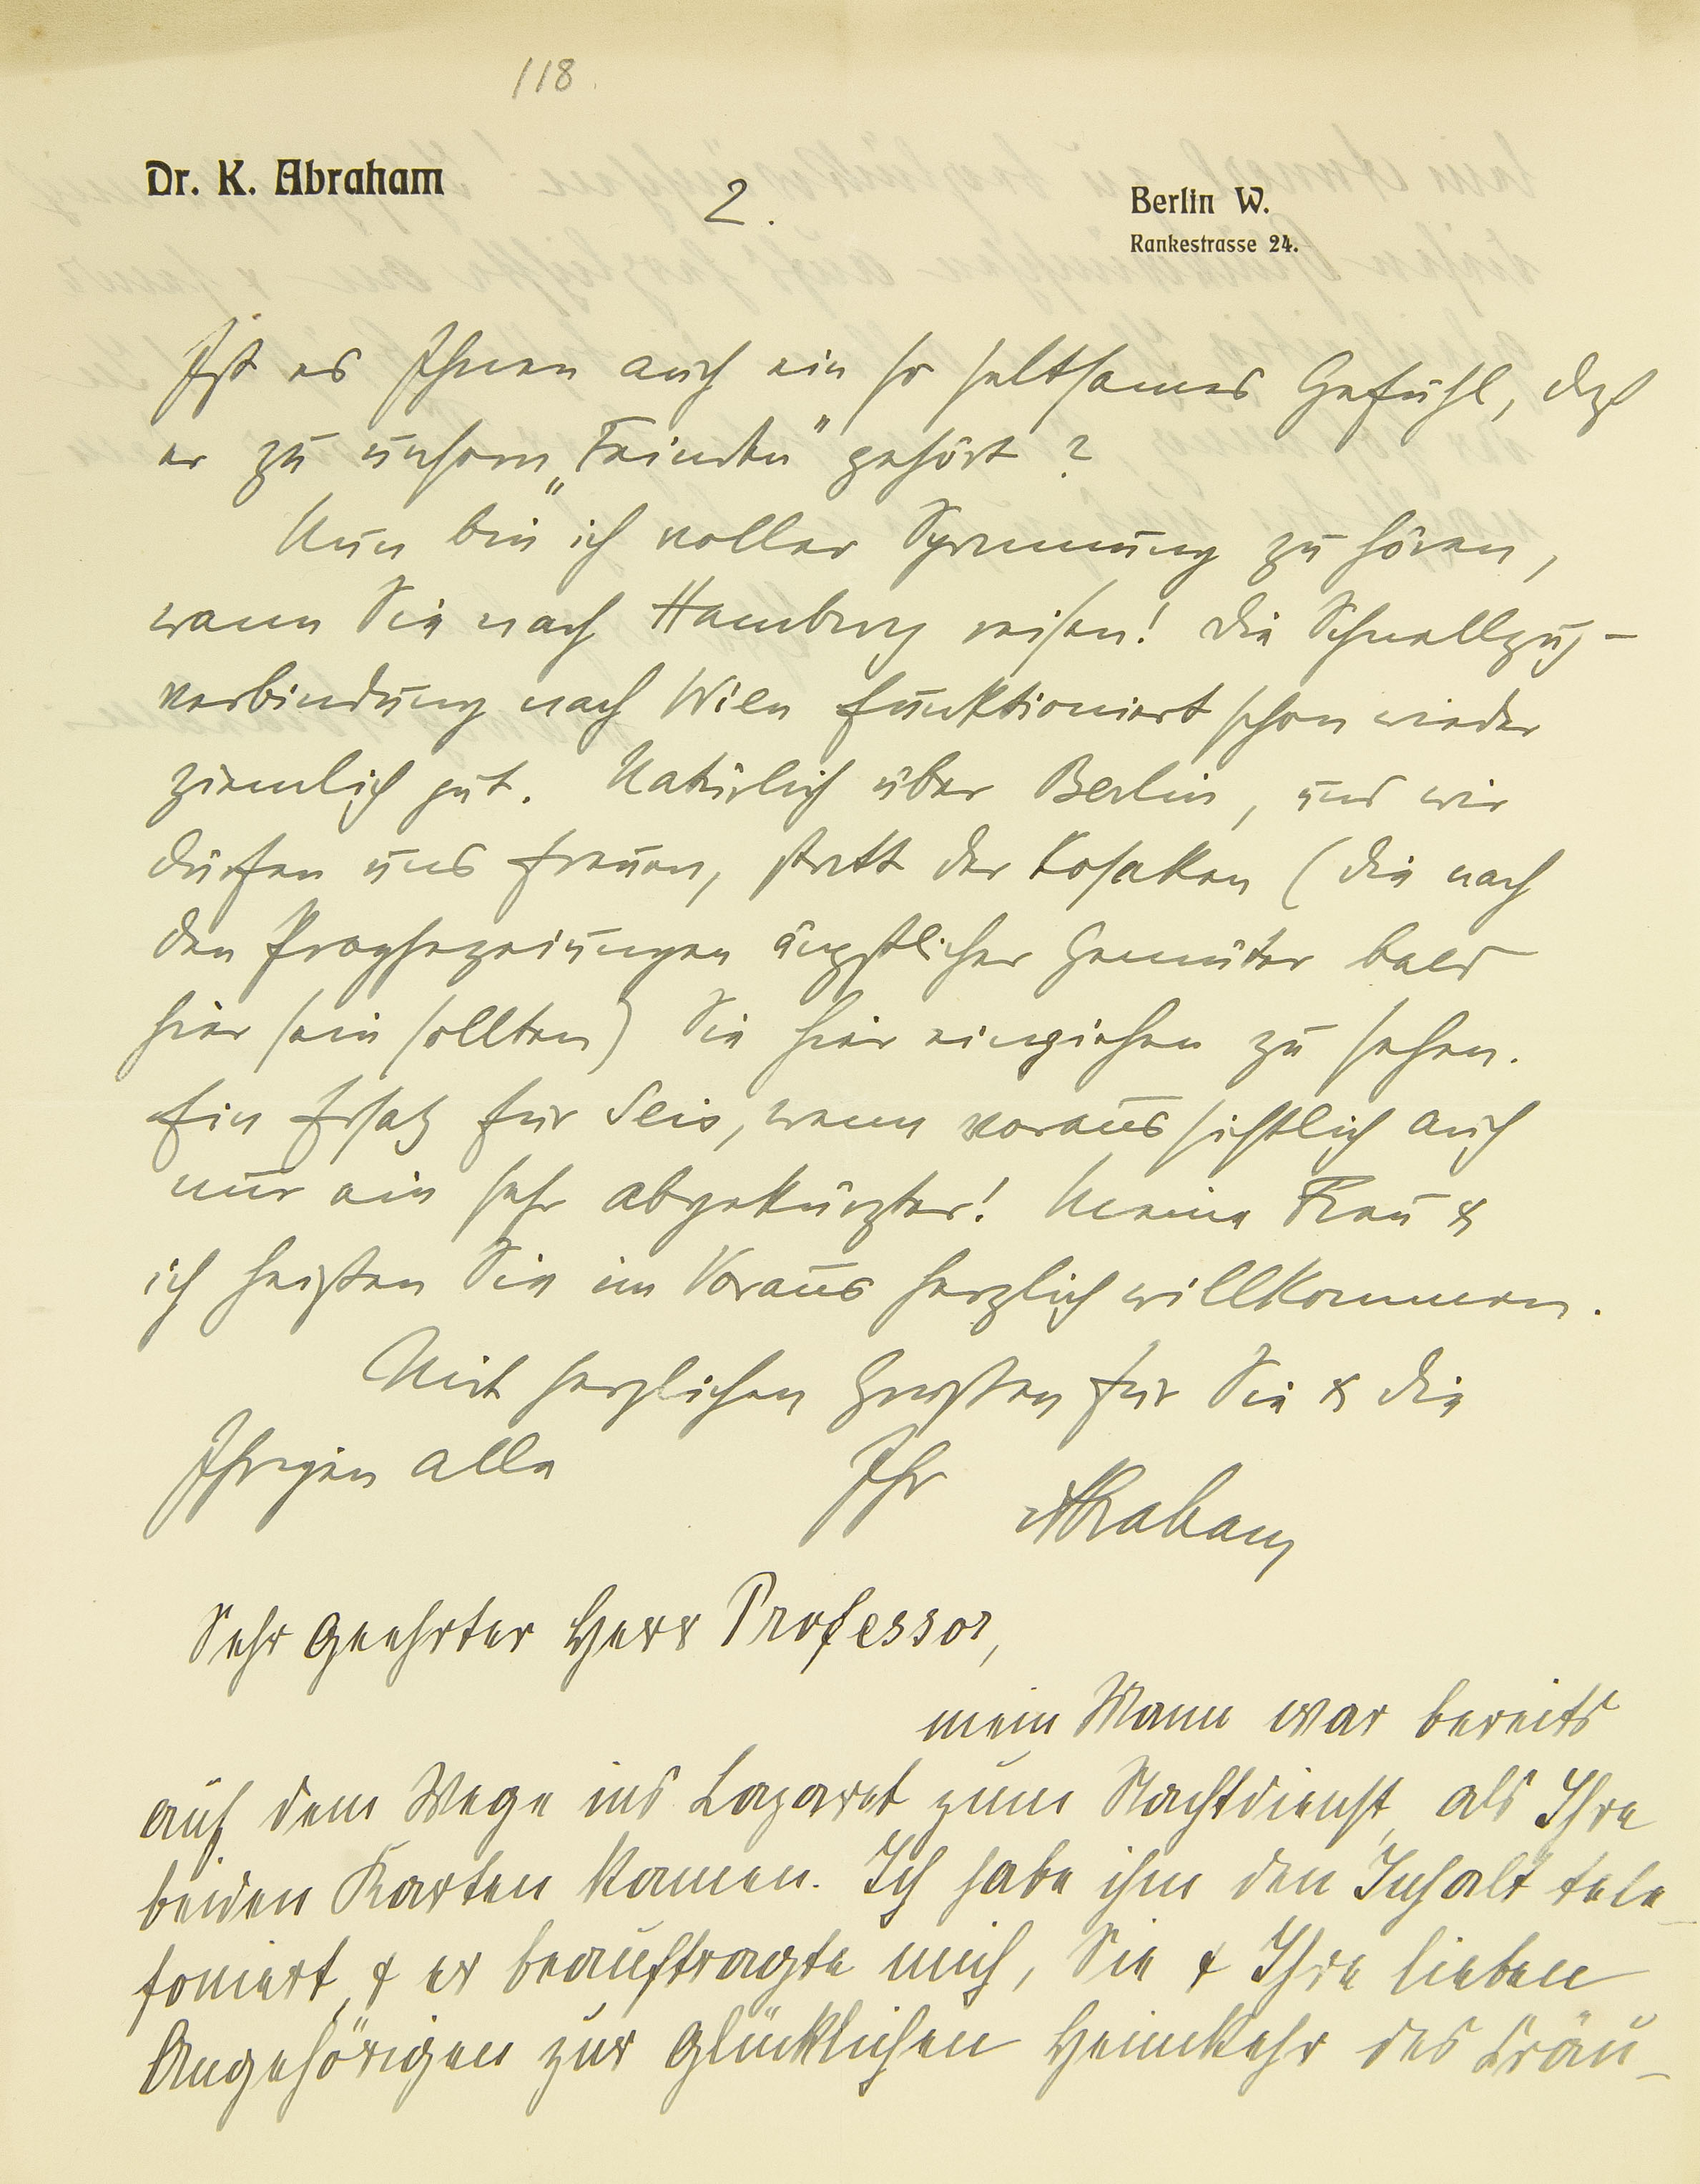 118
Dr. K. Abraham
2.
Berlin W.
Rankestrasse 24.
Ist es Ihnen auch ein so seltsames Gefühl, daß
er zu unsern „Feinden" gehört?
Nun bin ich voller Spannung zu hören,
wann Sie nach Hamburg reisen! Die Schnellzug-
verbindung nach Wien funktioniert schon wieder
ziemlich gut. Natürlich über Berlin, und wir
dürfen uns freuen, statt der Kosaken (die nach
den Prophezeiungen ängstlicher Gemüter bald
hier sein sollten) Sie hier einziehen zu sehen.
Ein Ersatz für Seis, wenn voraussichtlich auch
nur ein sehr abgekürzter! Meine Frau &
ich heißen Sie im Voraus herzlich willkommen.
Mit herzlichen Grüßen für Sie & die
Ihrigen alle
Ihr
Abraham
Sehr geehrter Herr Professor,
mein Mann war bereits
auf dem Wege ins Lazaret zum Nachtdienst, als Ihre
beiden Karten kamen. Ich habe ihm den Inhalt tele-
foniert, & er beauftragte mich, Sie & Ihre lieben
Angehörigen zur glücklichen Heimkehr des Fräu-